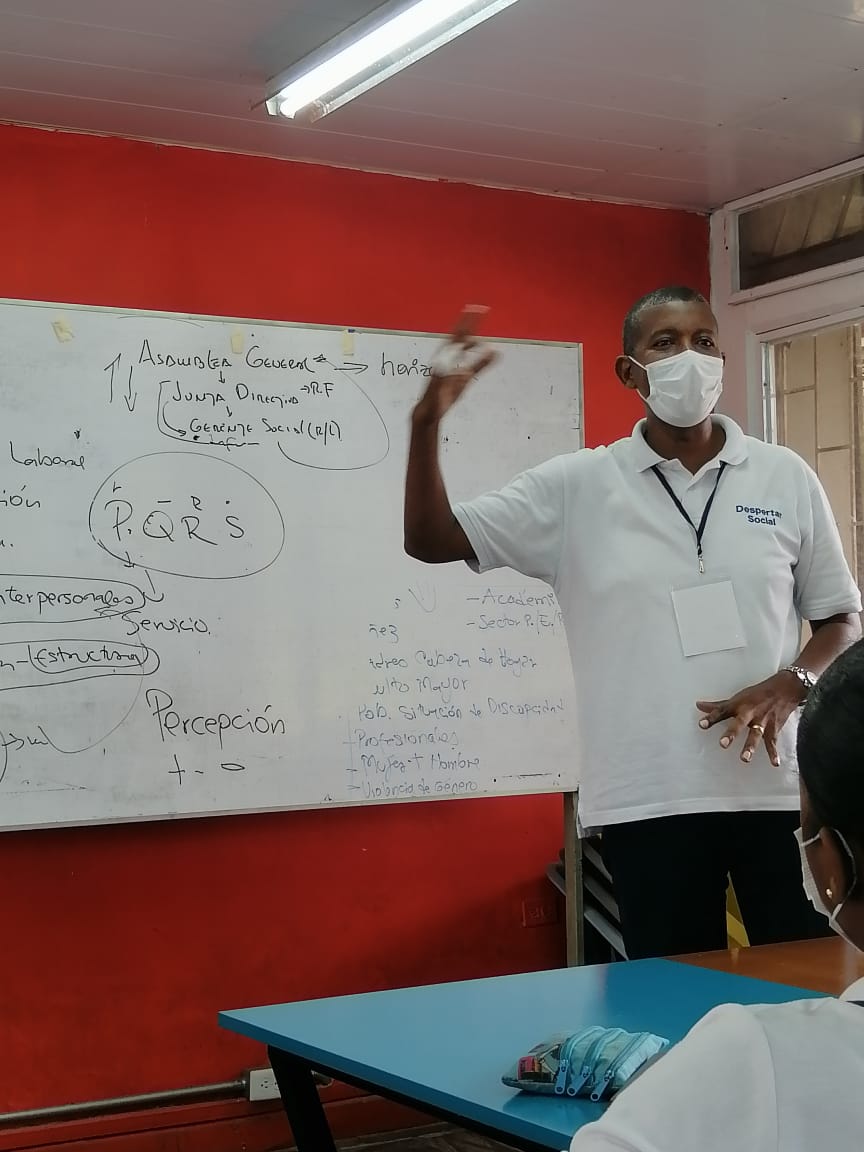 Asamblea General → horiz
Junta Directiva → R.F
Gerente Social (R/L)
Laboral
ión
P. Q R S
nterpersonales
Servicio.
n-(Estructura)
Percepción
+ - 0
- Academi
- Sector P./E./P
Cabeza de Hogar
ulto Mayor
Pob. Situación de Discapacida
+ Profesionales
- Mujer + Hombre
- Violencia de Género
Despertar
Social